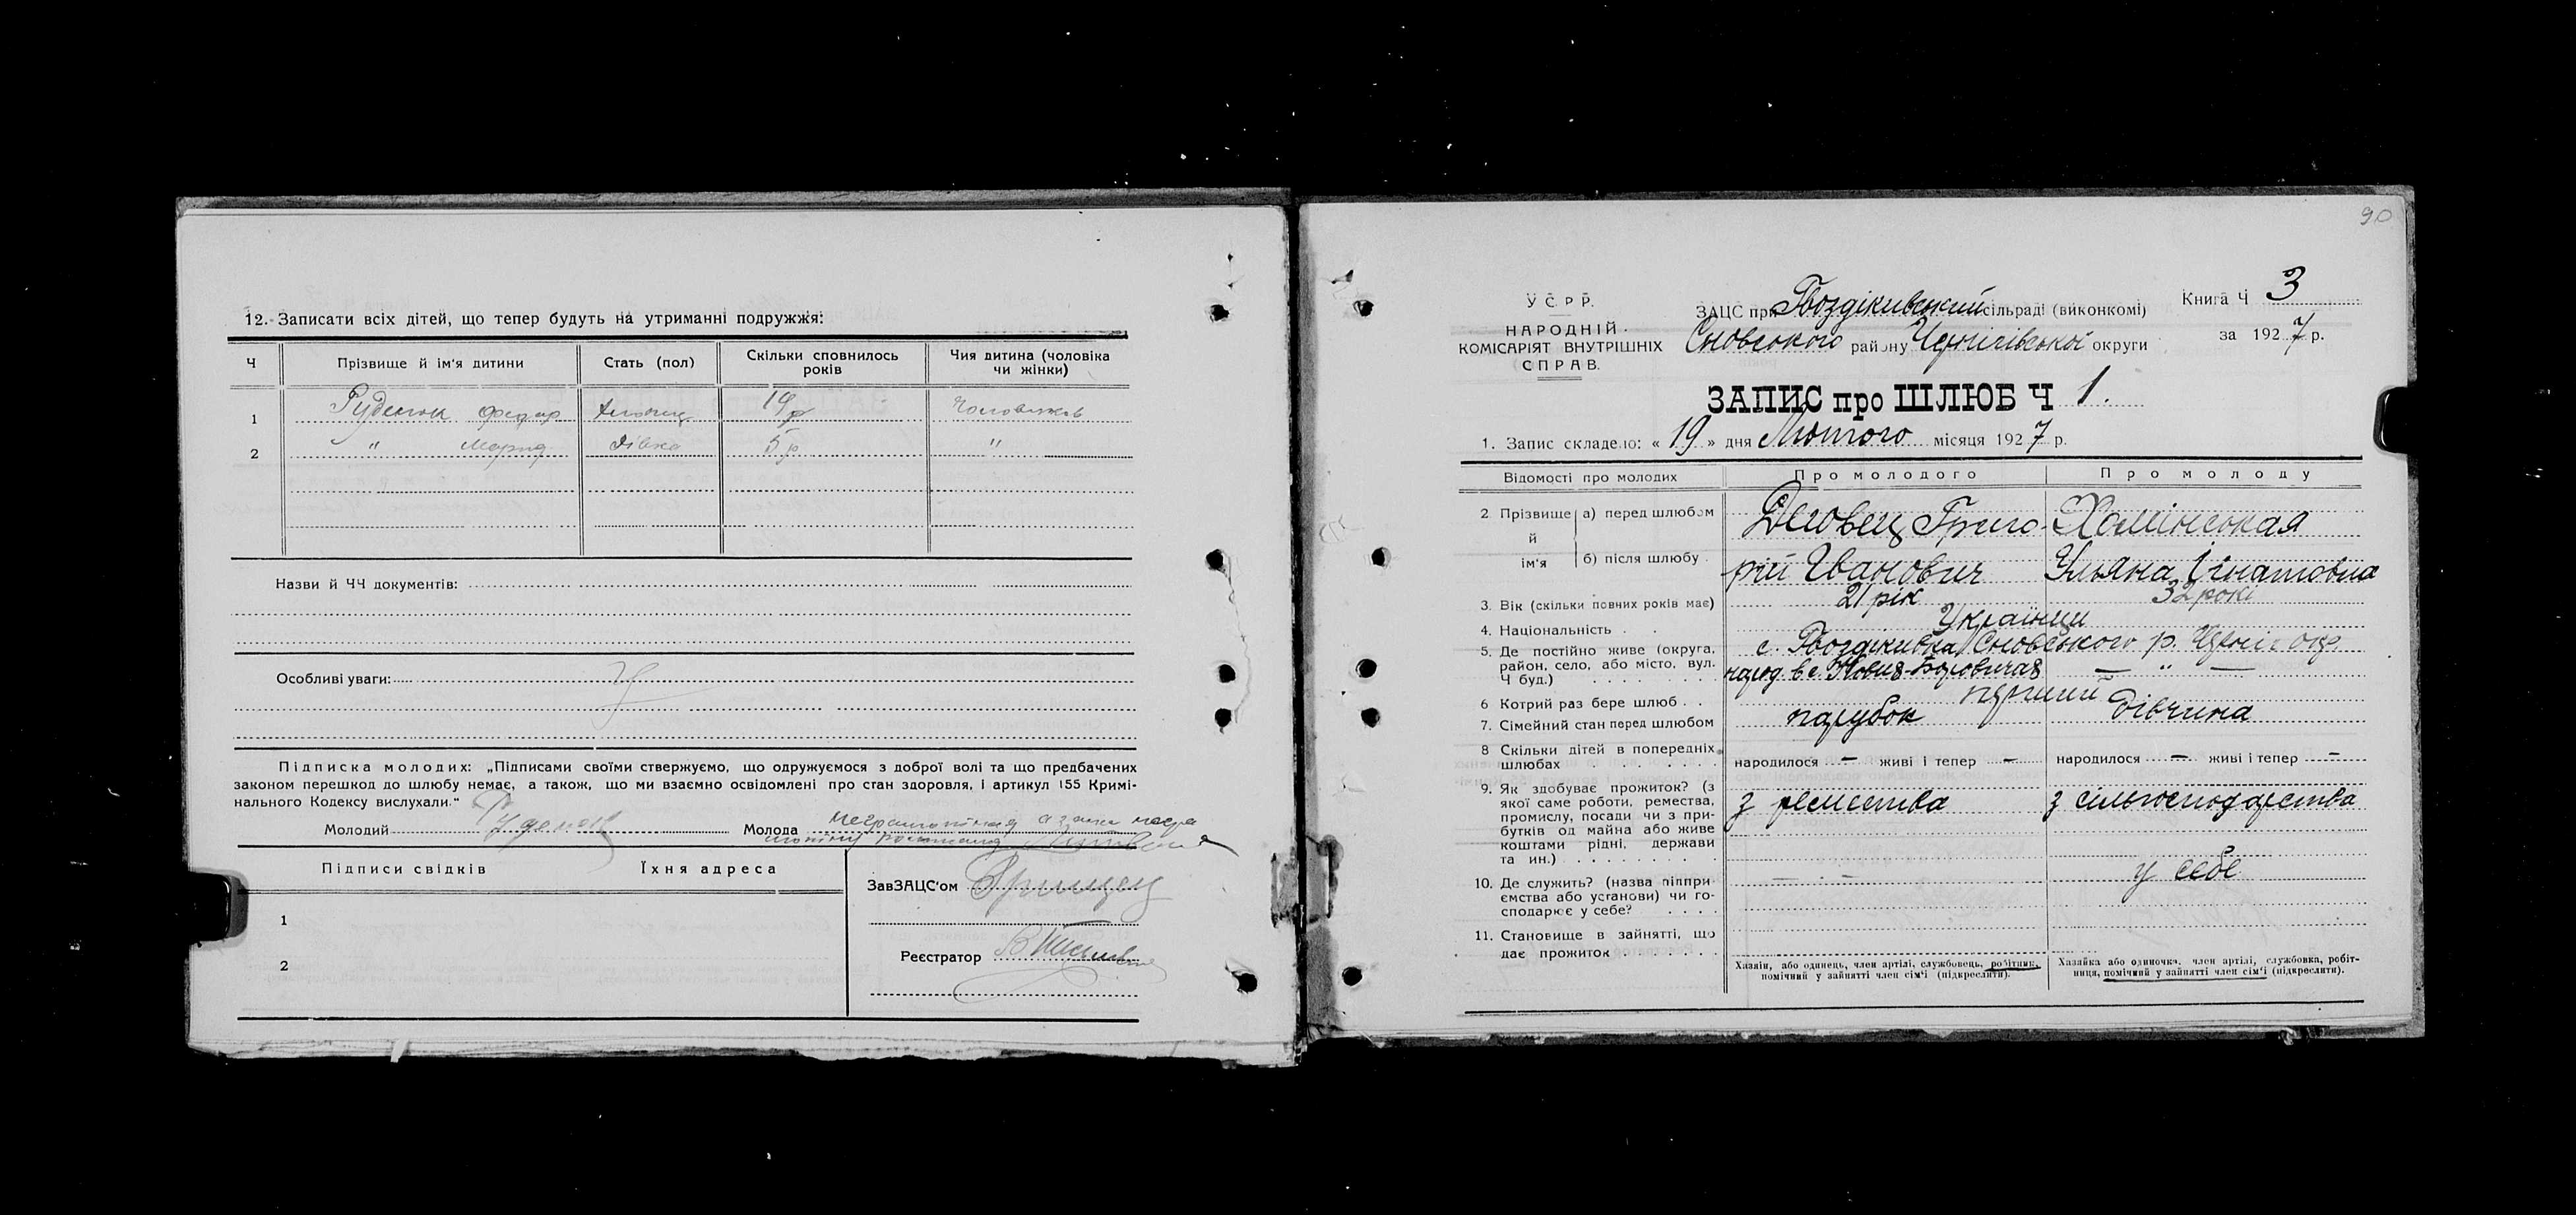 12. Записати всіх дітей, що тепер будуть на утриманні подружжя:
Ч Прізвище й ім'я дитини Стать (пол) Скільки сповнилось років Чия дитина (чоловіка чи жінки)
1 Руденок Федор хлопець 19 р чоловіков
2 " Мария дівка 5 р "
Назви й ЧЧ документів:
Особливі уваги:
Підписка молодих: „Підписами своїми ствержуємо, що одружуємося з доброї волі та що предбачених
законом перешкод до шлюбу немає, а також, що ми взаємно освідомлені про стан здоровля, і артикул 155 Кримі-
нального Кодексу вислухали."
Молодий Молода неграмотная а за неї
Підписи свідків Їхня адреса
ЗавЗАЦС'ом Грищец
1
Реєстратор
2
90
У С. Р Р.
НАРОДНІЙ
КОМІСАРІЯТ ВНУТРІШНІХ
СПРАВ.
ЗАЦС при Гвоздіківский сільраді (виконкомі)
Сновського району Чернігівської округи
Книга Ч 3
за 1927 р.
ЗАПИС про ШЛЮБ Ч 1.
1. Запис складено: « 19 » дня Лютого місяця 1927 р.
Відомості про молодих Про молодого Про молоду
2 Прізвище й ім'я а) перед шлюбом б) після шлюбу
Григо-
рій Іванович
Хомінськая
Ульяна Ігнатовна
3. Вік (скільки повних років має) 21 рік 32 рокі
4. Національність Українци
5. Де постійно живе (округа, район, село, або місто, вул. Ч буд.)
с. Гвоздіківка Сновського р. Черніг. окр.
народ в с. Новых-Боровичах — " —
6 Котрий раз бере шлюб перший
7. Сімейний стан перед шлюбом парубок дівчина
8 Скільки дітей в попередніх шлюбах народилося — живі і тепер — народилося — живі і тепер —
9. Як здобуває прожиток? (з якої саме роботи, ремества, промислу, посади чи з прибутків од майна або живе коштами рідні, держави та ин.)
з ремества з сільгосподарства
10. Де служить? (назва підприємства або установи) чи господарює у себе? — у себе
11. Становище в зайнятті, що дає прожиток
Хазяїн, або одинець, член артілі, службовець, робітник, помічний у зайнятті член сім'ї (підкреслити).
Хазяйка або одиночка, член артілі, службовка, робітниця, помічний у зайнятті член сім'ї (підкреслити).